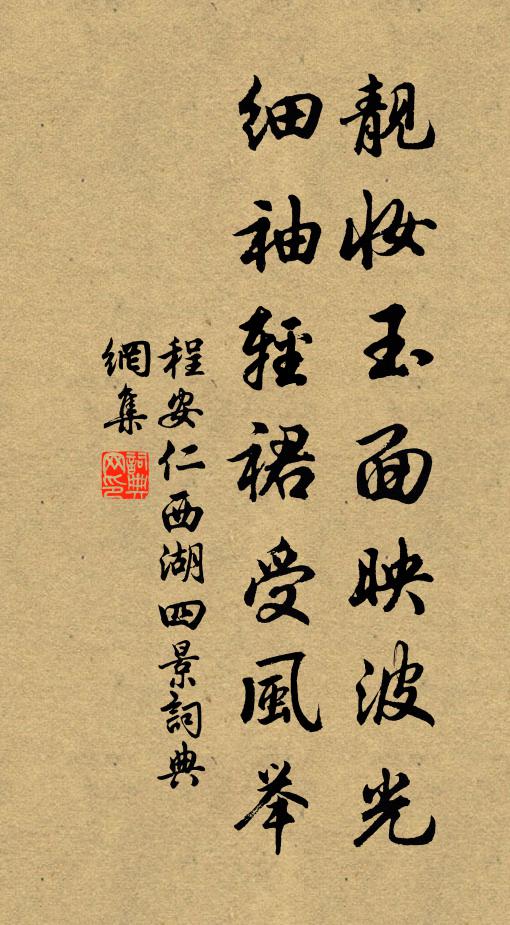 靚妆玉面映波光
细袖輕裙受風举
程安仁西湖四景詞典
網集
詞典网印